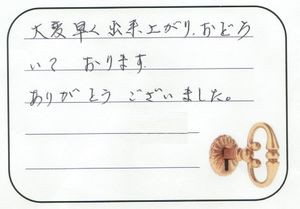 大変早く出来上がり、おどろ
いて おります。
ありがとう ございました。